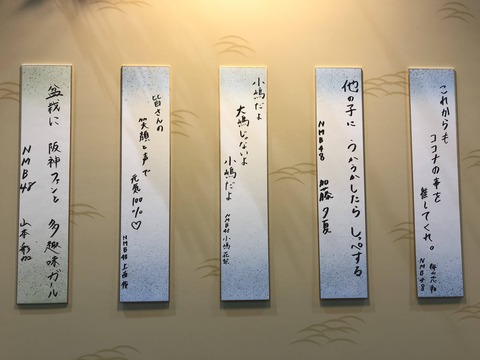 これからも
ココナの事を
推してくれ。
NMB48
他の子に うかうかしたら しっぺする
NMB48 加藤夕夏
小嶋だよ
大嶋じゃないよ
小嶋だよ
NMB48 小嶋花梨
皆さんの
笑顔と声で
元気100%♡
NMB48 上西怜
盆栽に 阪神ファンと 多趣味ガール
NMB48 山本彩加